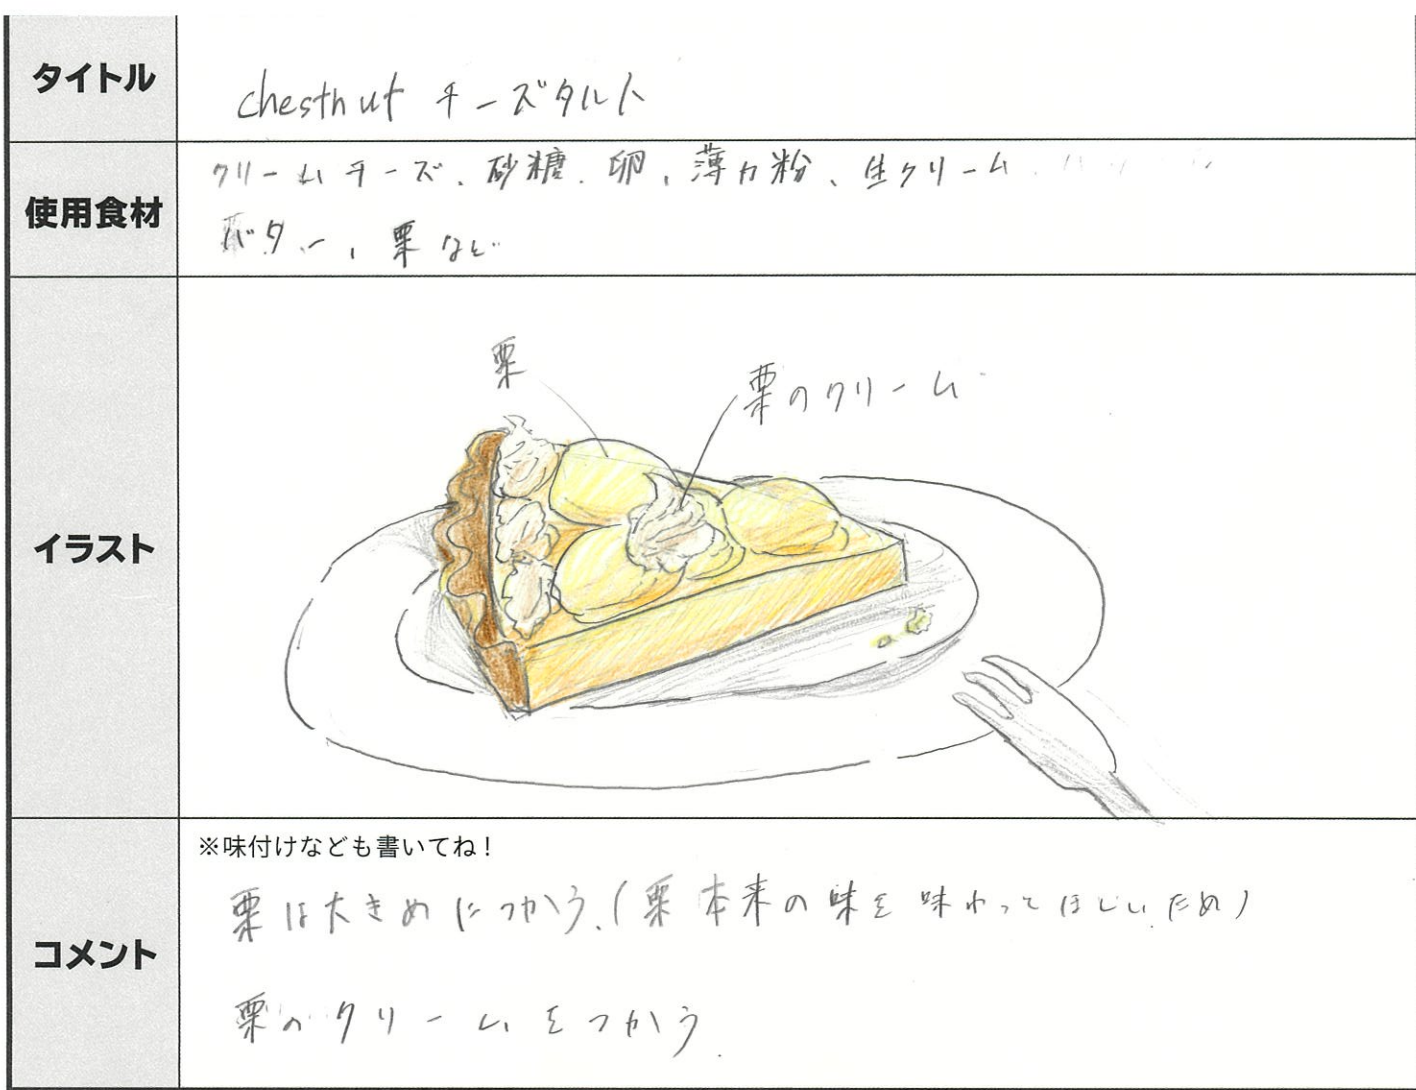 タイトル
chestnut チーズタルト
使用食材
クリームチーズ、砂糖、卵、薄力粉、生クリーム、
バター、栗など
イラスト
栗
栗のクリーム
コメント
※味付けなども書いてね!
栗は大きめにつかう。(栗本来の味を味わってほしいため)
栗のクリームをつかう。